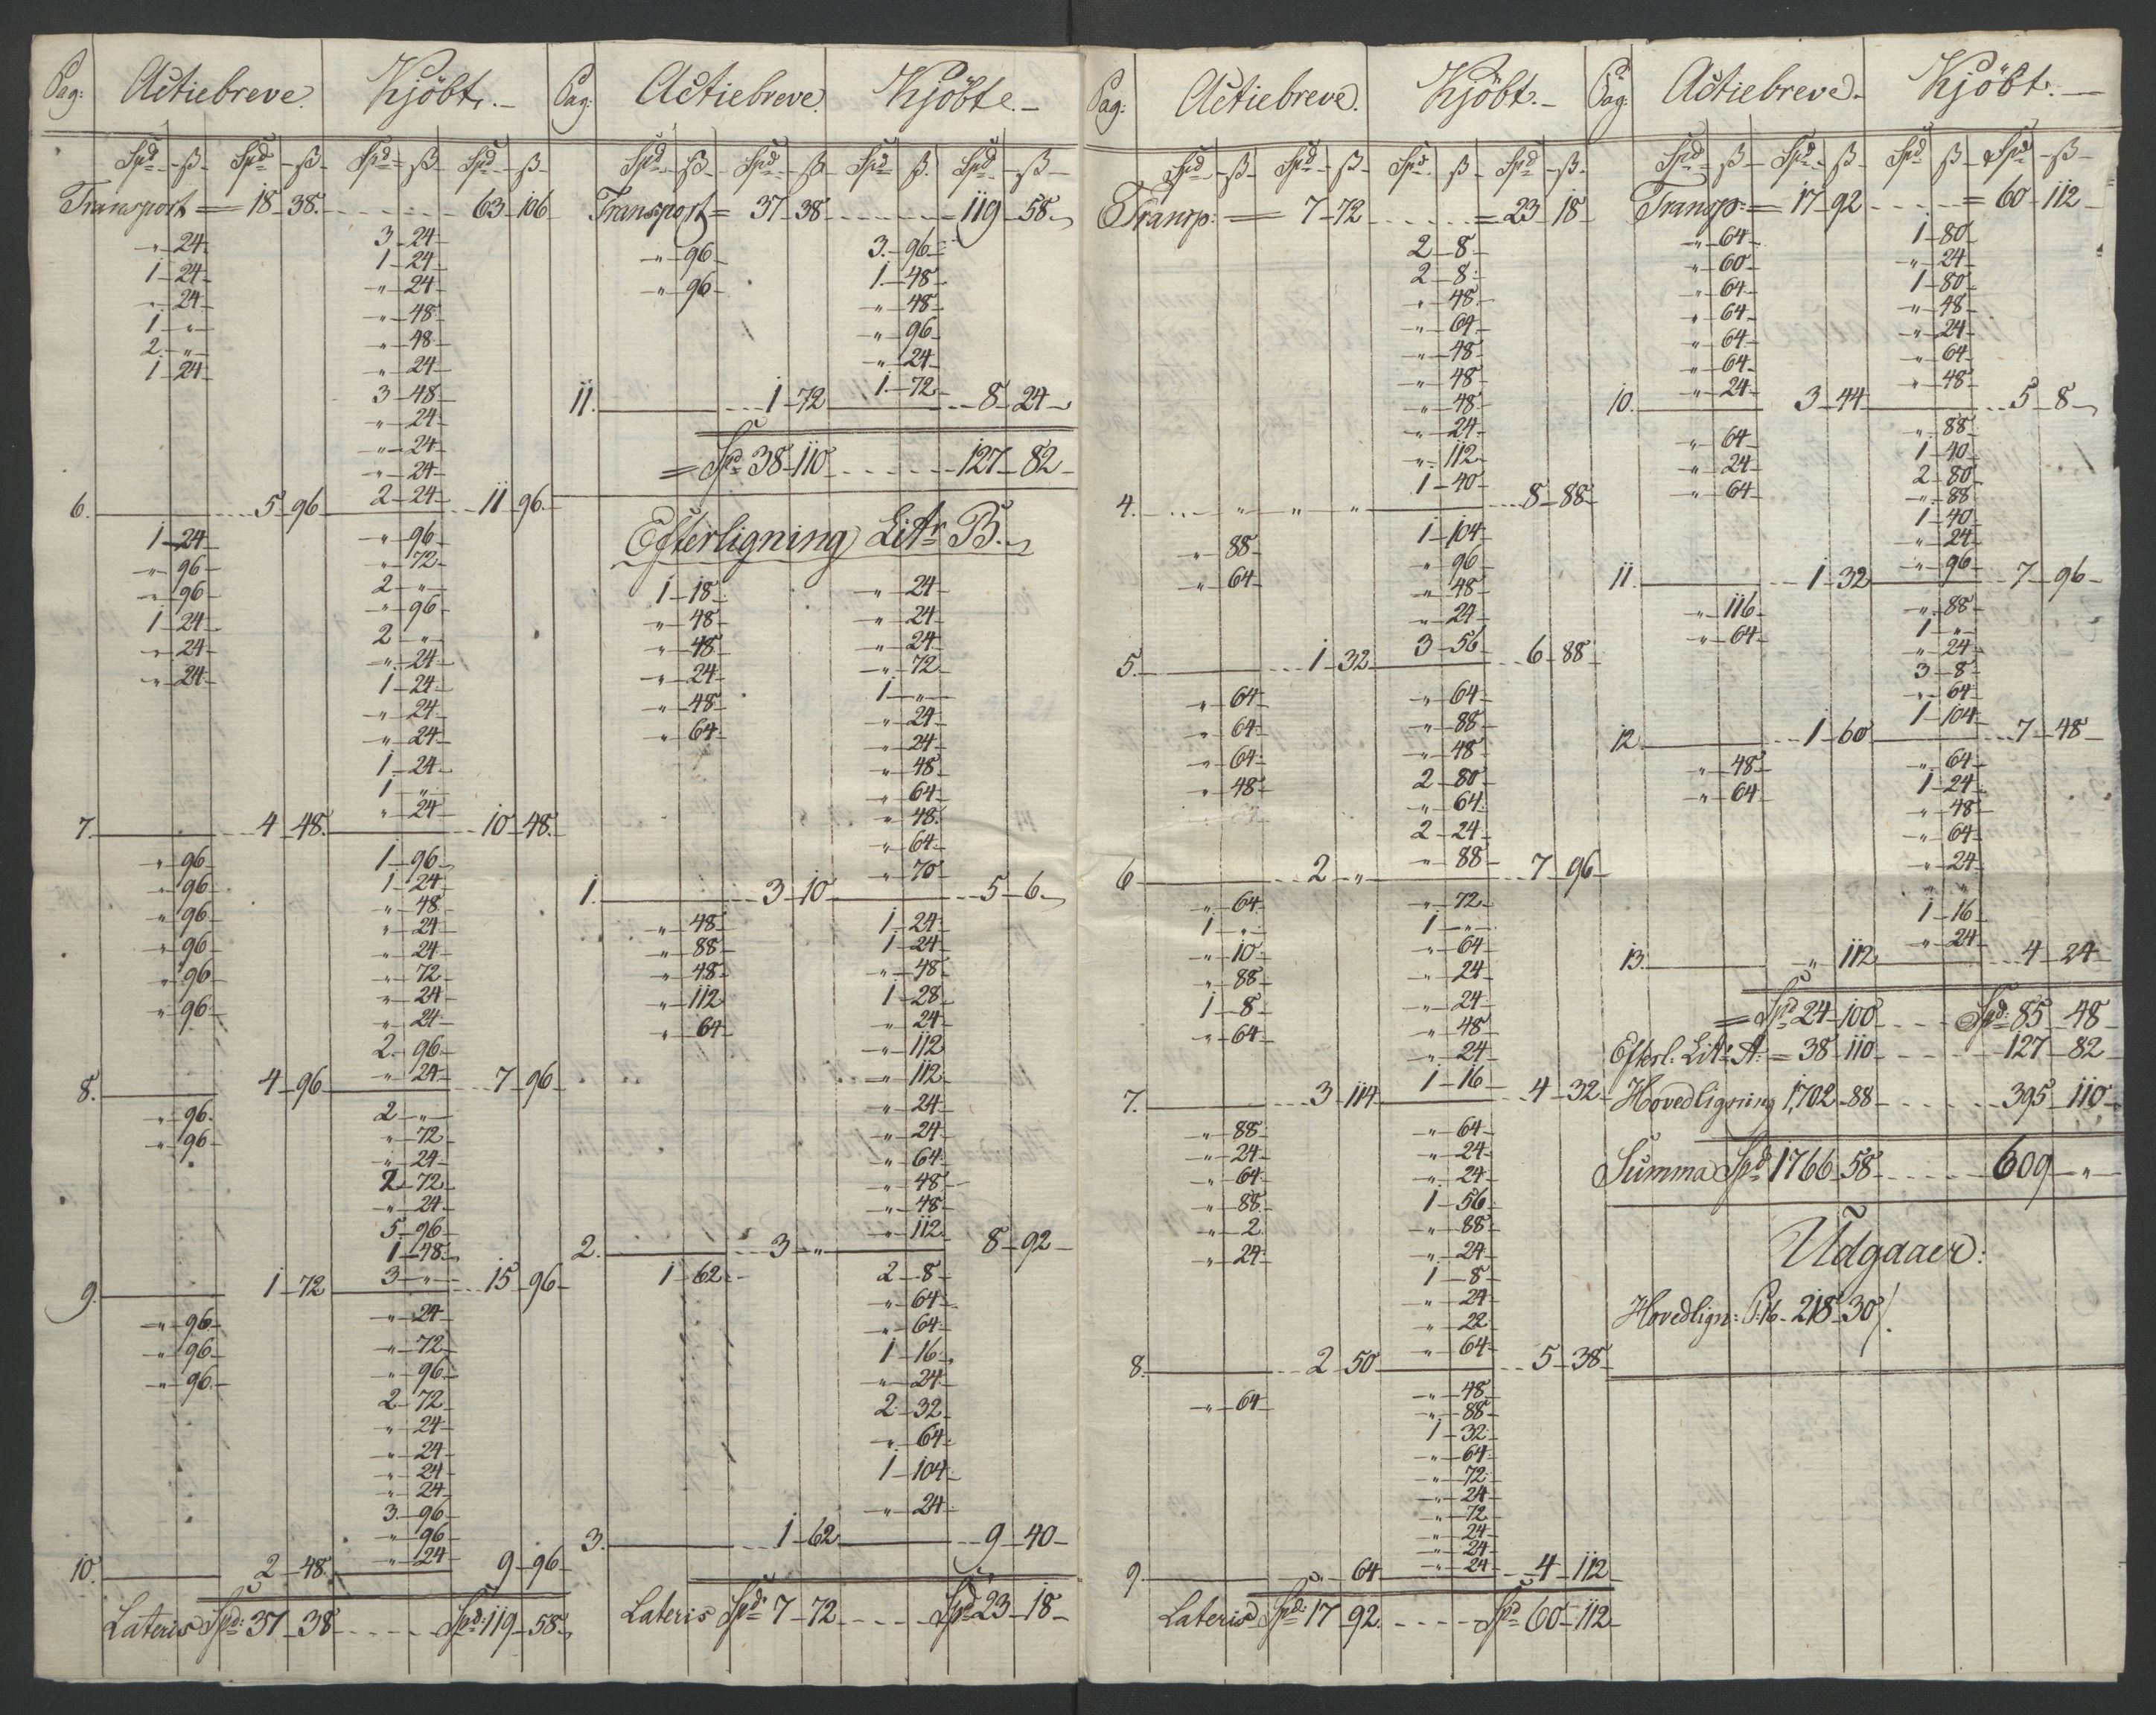 Pag: Actiebreve. Kjöbt.
Spd ß Spd ß Spd ß Spd ß
Transport = 18 38. 63 106
" 24 3 24
1 24 1 24
" 24 " 24
1 " " 48
2 " " 48
1 24 " 24
3 48
" 24
" 24
" 24
2 24
6. 5 96 11 96
1 24 " 96
" 96 " 72
" 96 2 "
1 24 " 96
" 24 2 "
" 24 " 24
1 24
" 24
" 24
1 24
1 "
" 24
7. 4 48. 10 48.
" 96 1 96
" 96 1 24
" 96 " 48
" 96 " 24
" 96 " 24
" 96 " 72
" 24
" 24
2 96
" 24
8. 4 96 7 96
" 96 2 "
" 96 " 72
" 24
2 72
" 24
5 96
1 48
3 "
9. 1 72 15 96
" 96 " 24
" 96 " 72
" 96 " 96
2 72
" 24
" 24
" 24
" 24
3 96
" 96
" 24
10. 2 48. 9 96
Lateris Spd: 37 38 Spd: 119 58
Pag: Actiebreve. Kjöbte.
Spd ß Spd ß Spd ß Spd ß
Transport = 37 38 119 58
" 96 3 96
" 96 1 48
" 48
" 96
" 24
1 72
11. 1 72 8 24
= Spd 38 110 127 82
Efterligning Litr B.
1 18 " 24
" 48 " 24
" 48 " 24
" 24 " 72
" 48 1 "
" 64 " 24
" 24
" 48
" 64
" 48
" 64
" 70
1. 3 10 5 6
" 48 1 24
" 88 1 24
" 48 " 48
" 112 1 28
" 64 " 24
" 112
" 112
" 24
" 24
" 64
" 48
" 48
" 112
2. 3 " 8 92
1 62 2 8
" 64
" 64
1 16
" 24
2 32
" 64
1 104
" 24
3. 1 62 9 40
Lateris Spd 7 72 Spd 23 18
Pag: Actiebreve. Kjöbt.
Spd ß Spd ß Spd ß Spd ß
Transp: = 7 72 = 23 18
2 8
2 8
" 48
" 64
" 48
" 48
" 48
" 24
" 112
1 40
4. " " " 8 88
" 88 1 104
" 64 " 96
" 48
" 24
3 56
5. 1 32 6 88
" 64 " 64
" 64 " 88
" 64 " 48
" 48 2 80
" 64
2 24
" 88
6 2 " 7 96
" 64 " 72
1 " 1 "
" 10 " 64
" 88 " 24
1 8 " 24
" 64 " 48
" 24
1 16
7. 3 114 4 32
" 88 " 64
" 24 " 24
" 64 " 24
" 88 1 56
" 2 " 88
" 24 " 24
1 8
" 24
" 22
" 64
8. 2 50 5 38
" 64 " 48
" 88
1 32
" 64
" 72
" 24
" 72
" 24
" 24
" 24
9. " 64 4 112
Lateris Spd: 17 92. Spd 60 112
Pag: Actiebreve. Kjöbt.
Spd ß Spd ß Spd ß Spd ß
Transp: = 17 92 = 60 112
" 64 1 80
" 60 " 24
" 64 1 80
" 64 " 48
" 64 " 24
" 64 " 64
" 24 " 48
10. 3 44 5 8
" 64 " 88
" 24 1 40
" 64 2 80
" 88
1 40
" 24
" 96
11. 1 32 7 96
" 116 " 88
" 64 1 "
" 24
3 8
" 64
1 104
12. 1 60 7 48
" 48 " 64
" 64 1 24
" 48
" 64
" 24
" "
1 16
" 24
13. " 112 4 24
= Spd 24 100 Spd: 85 48
Efterl. Litr A: = 38 110 127 82
Hovedligning 1702 88 395 110
Summa Spd 1766 58 609 "
Udgaaer:
Hovedlign: P. 16. 218 30